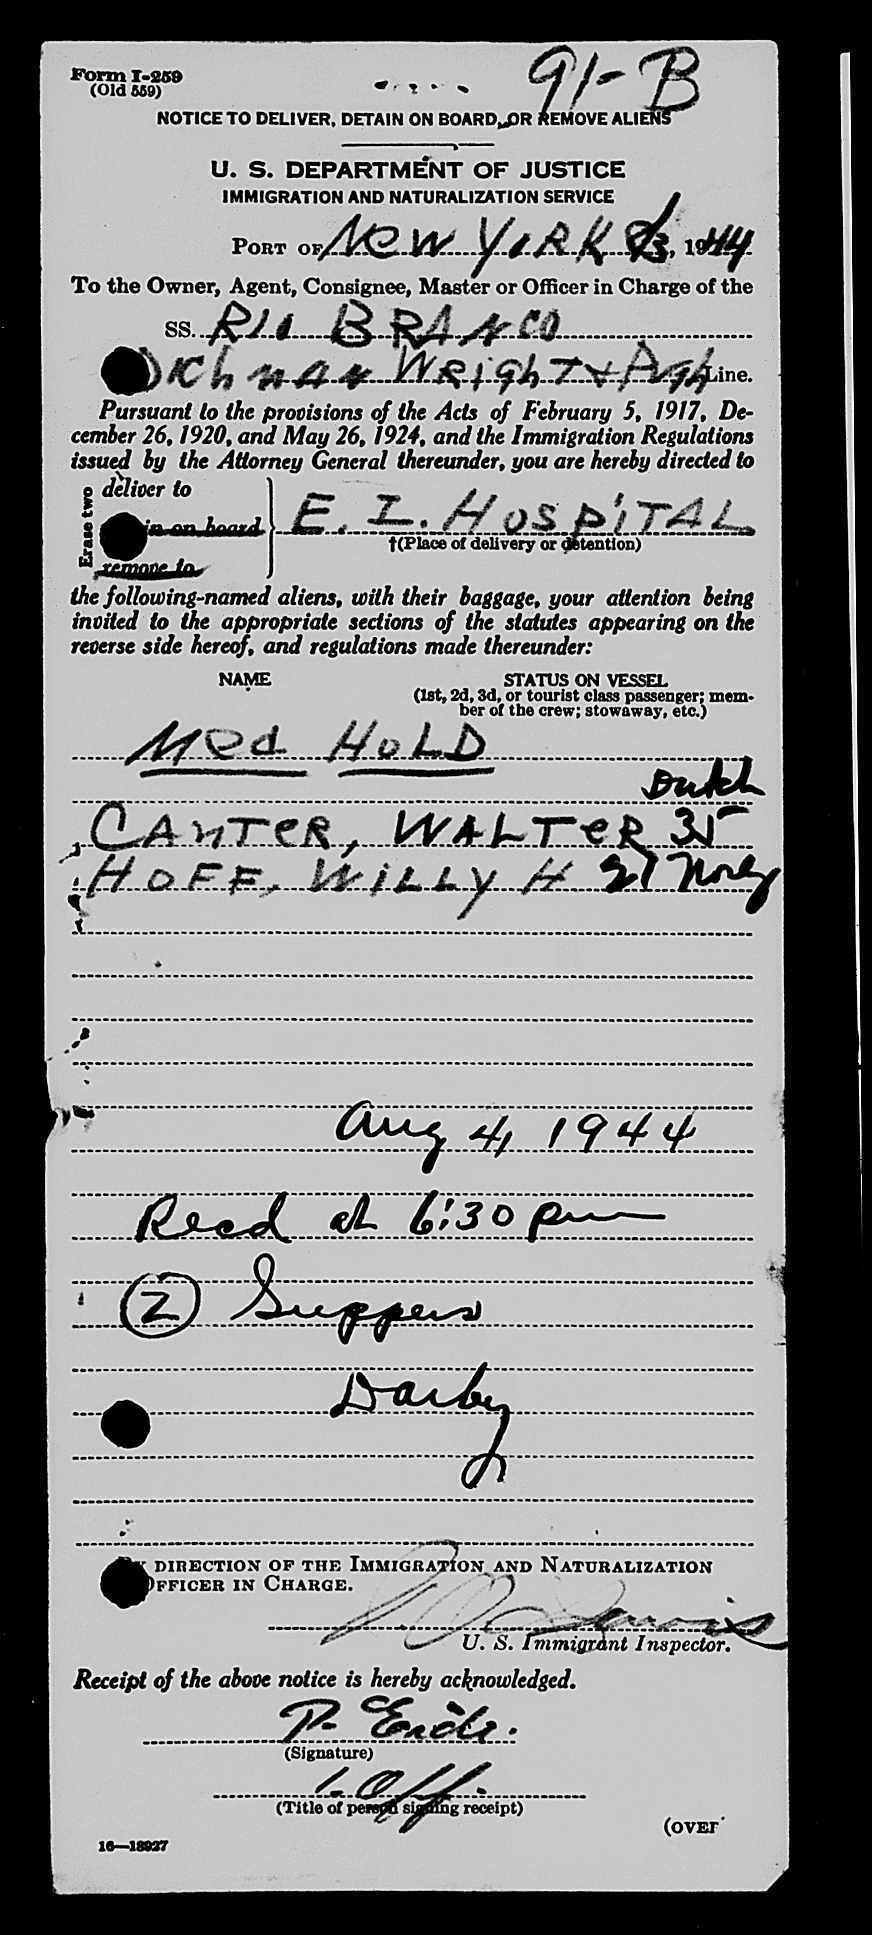 Form I-259
(Old 559)
91-B
NOTICE TO DELIVER, DETAIN ON BOARD, OR REMOVE ALIENS
U. S. DEPARTMENT OF JUSTICE
IMMIGRATION AND NATURALIZATION SERVICE
PORT OF NEW YORK 8/3, 1944
To the Owner, Agent, Consignee, Master or Officer in Charge of the
SS. RIO BRANCO
Wright + Pugh Line.
Pursuant to the provisions of the Acts of February 5, 1917, De-
cember 26, 1920, and May 26, 1924, and the Immigration Regulations
issued by the Attorney General thereunder, you are hereby directed to
deliver to
in on board
remove to
Erase two
E. I. HOSPITAL
†(Place of delivery or detention)
the following-named aliens, with their baggage, your attention being
invited to the appropriate sections of the statutes appearing on the
reverse side hereof, and regulations made thereunder:
NAME STATUS ON VESSEL
(1st, 2d, 3d, or tourist class passenger; mem-
ber of the crew; stowaway, etc.)
Med HOLD
Dutch
CANTER, WALTER 35
HOFF, WILLY H 27 Norg
Aug 4, 1944
Recd at 6:30 pm
2 Suppers
Darby
BY DIRECTION OF THE IMMIGRATION AND NATURALIZATION
OFFICER IN CHARGE.
U. S. Immigrant Inspector.
Receipt of the above notice is hereby acknowledged.
P. Eide.
(Signature)
1. Off.
(Title of person signing receipt)
(OVER
16—18927